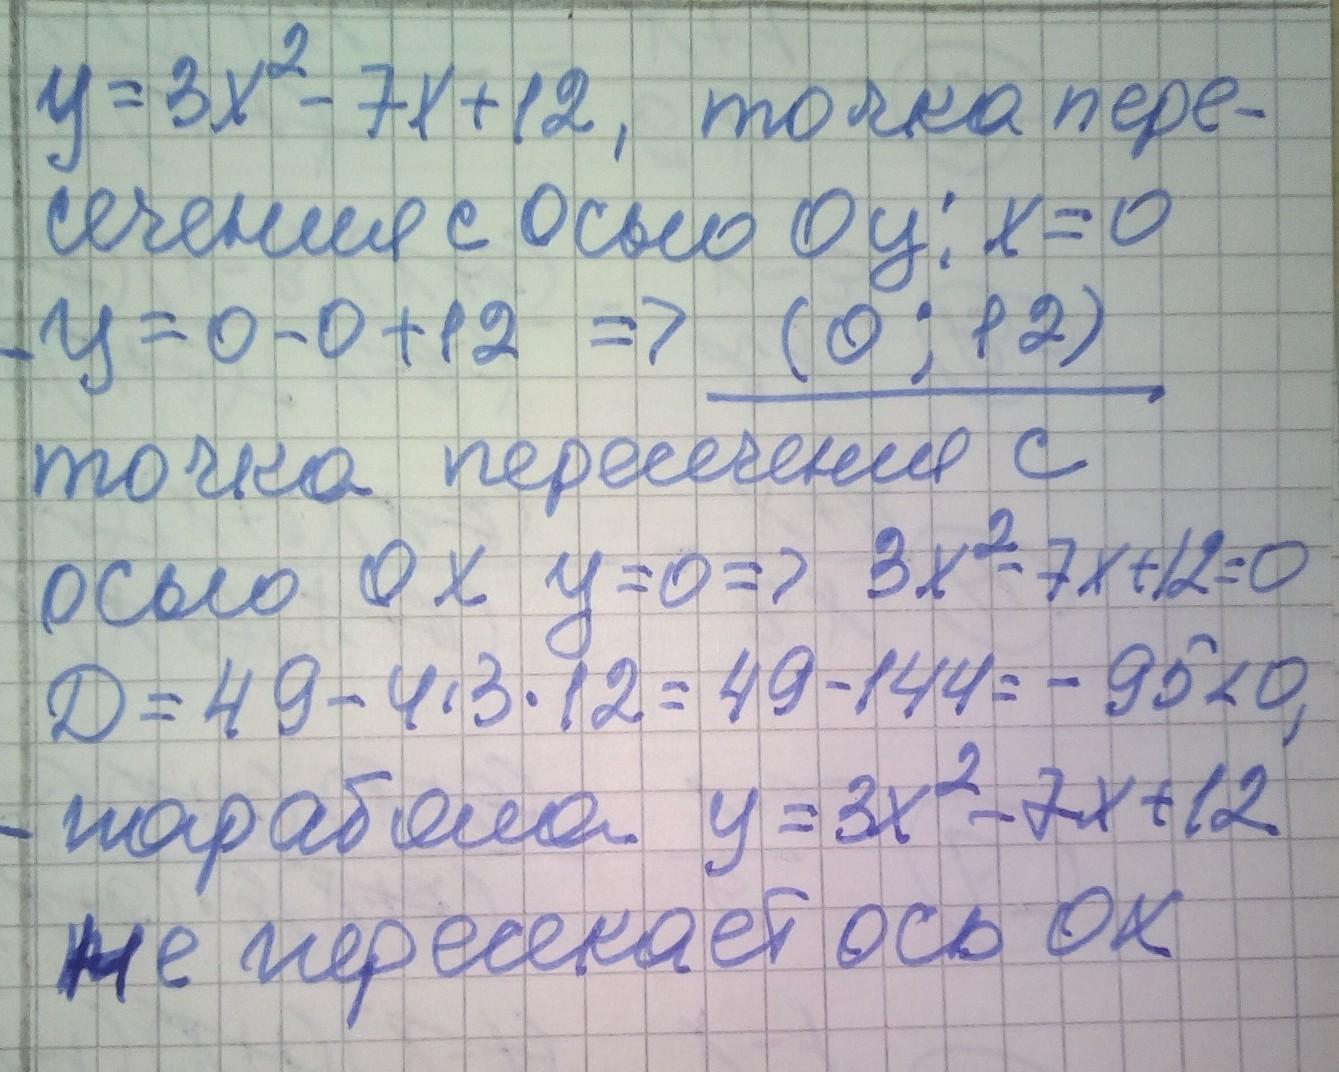 y = 3x² - 7x + 12, точка пере-
сечения с осью Oy: x = 0
y = 0 - 0 + 12 => (0; 12)
точка пересечения с
осью Ox y = 0 => 3x² - 7x + 12 = 0
Д = 49 - 4·3·12 = 49 - 144 = - 95 < 0,
парабола y = 3x² - 7x + 12
не пересекает ось Ox